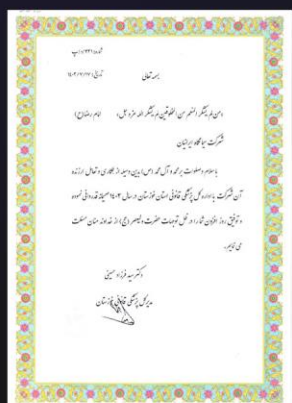 بسمه تعالی
شماره: ۱/۳۳۱/پ
تاریخ: ۱۴۰۳/۷/۱۷
«من لم یشکر المنعم من المخلوقین لم یشکر الله عزوجل» امام رضا(ع)
شرکت ایرانیان
با سلام و صلوات بر محمد و آل محمد (ص) بدین وسیله از همکاری و تعامل ارزنده
آن شرکت با اداره کل پزشکی قانونی استان خوزستان در سال ۱۴۰۳ صمیمانه قدردانی نموده
و توفیق روز افزون شما را در ظل توجهات حضرت ولیعصر (عج) از خداوند منان مسئلت
می نمایم.
دکتر سید فرزاد حسینی
مدیرکل پزشکی قانونی خوزستان